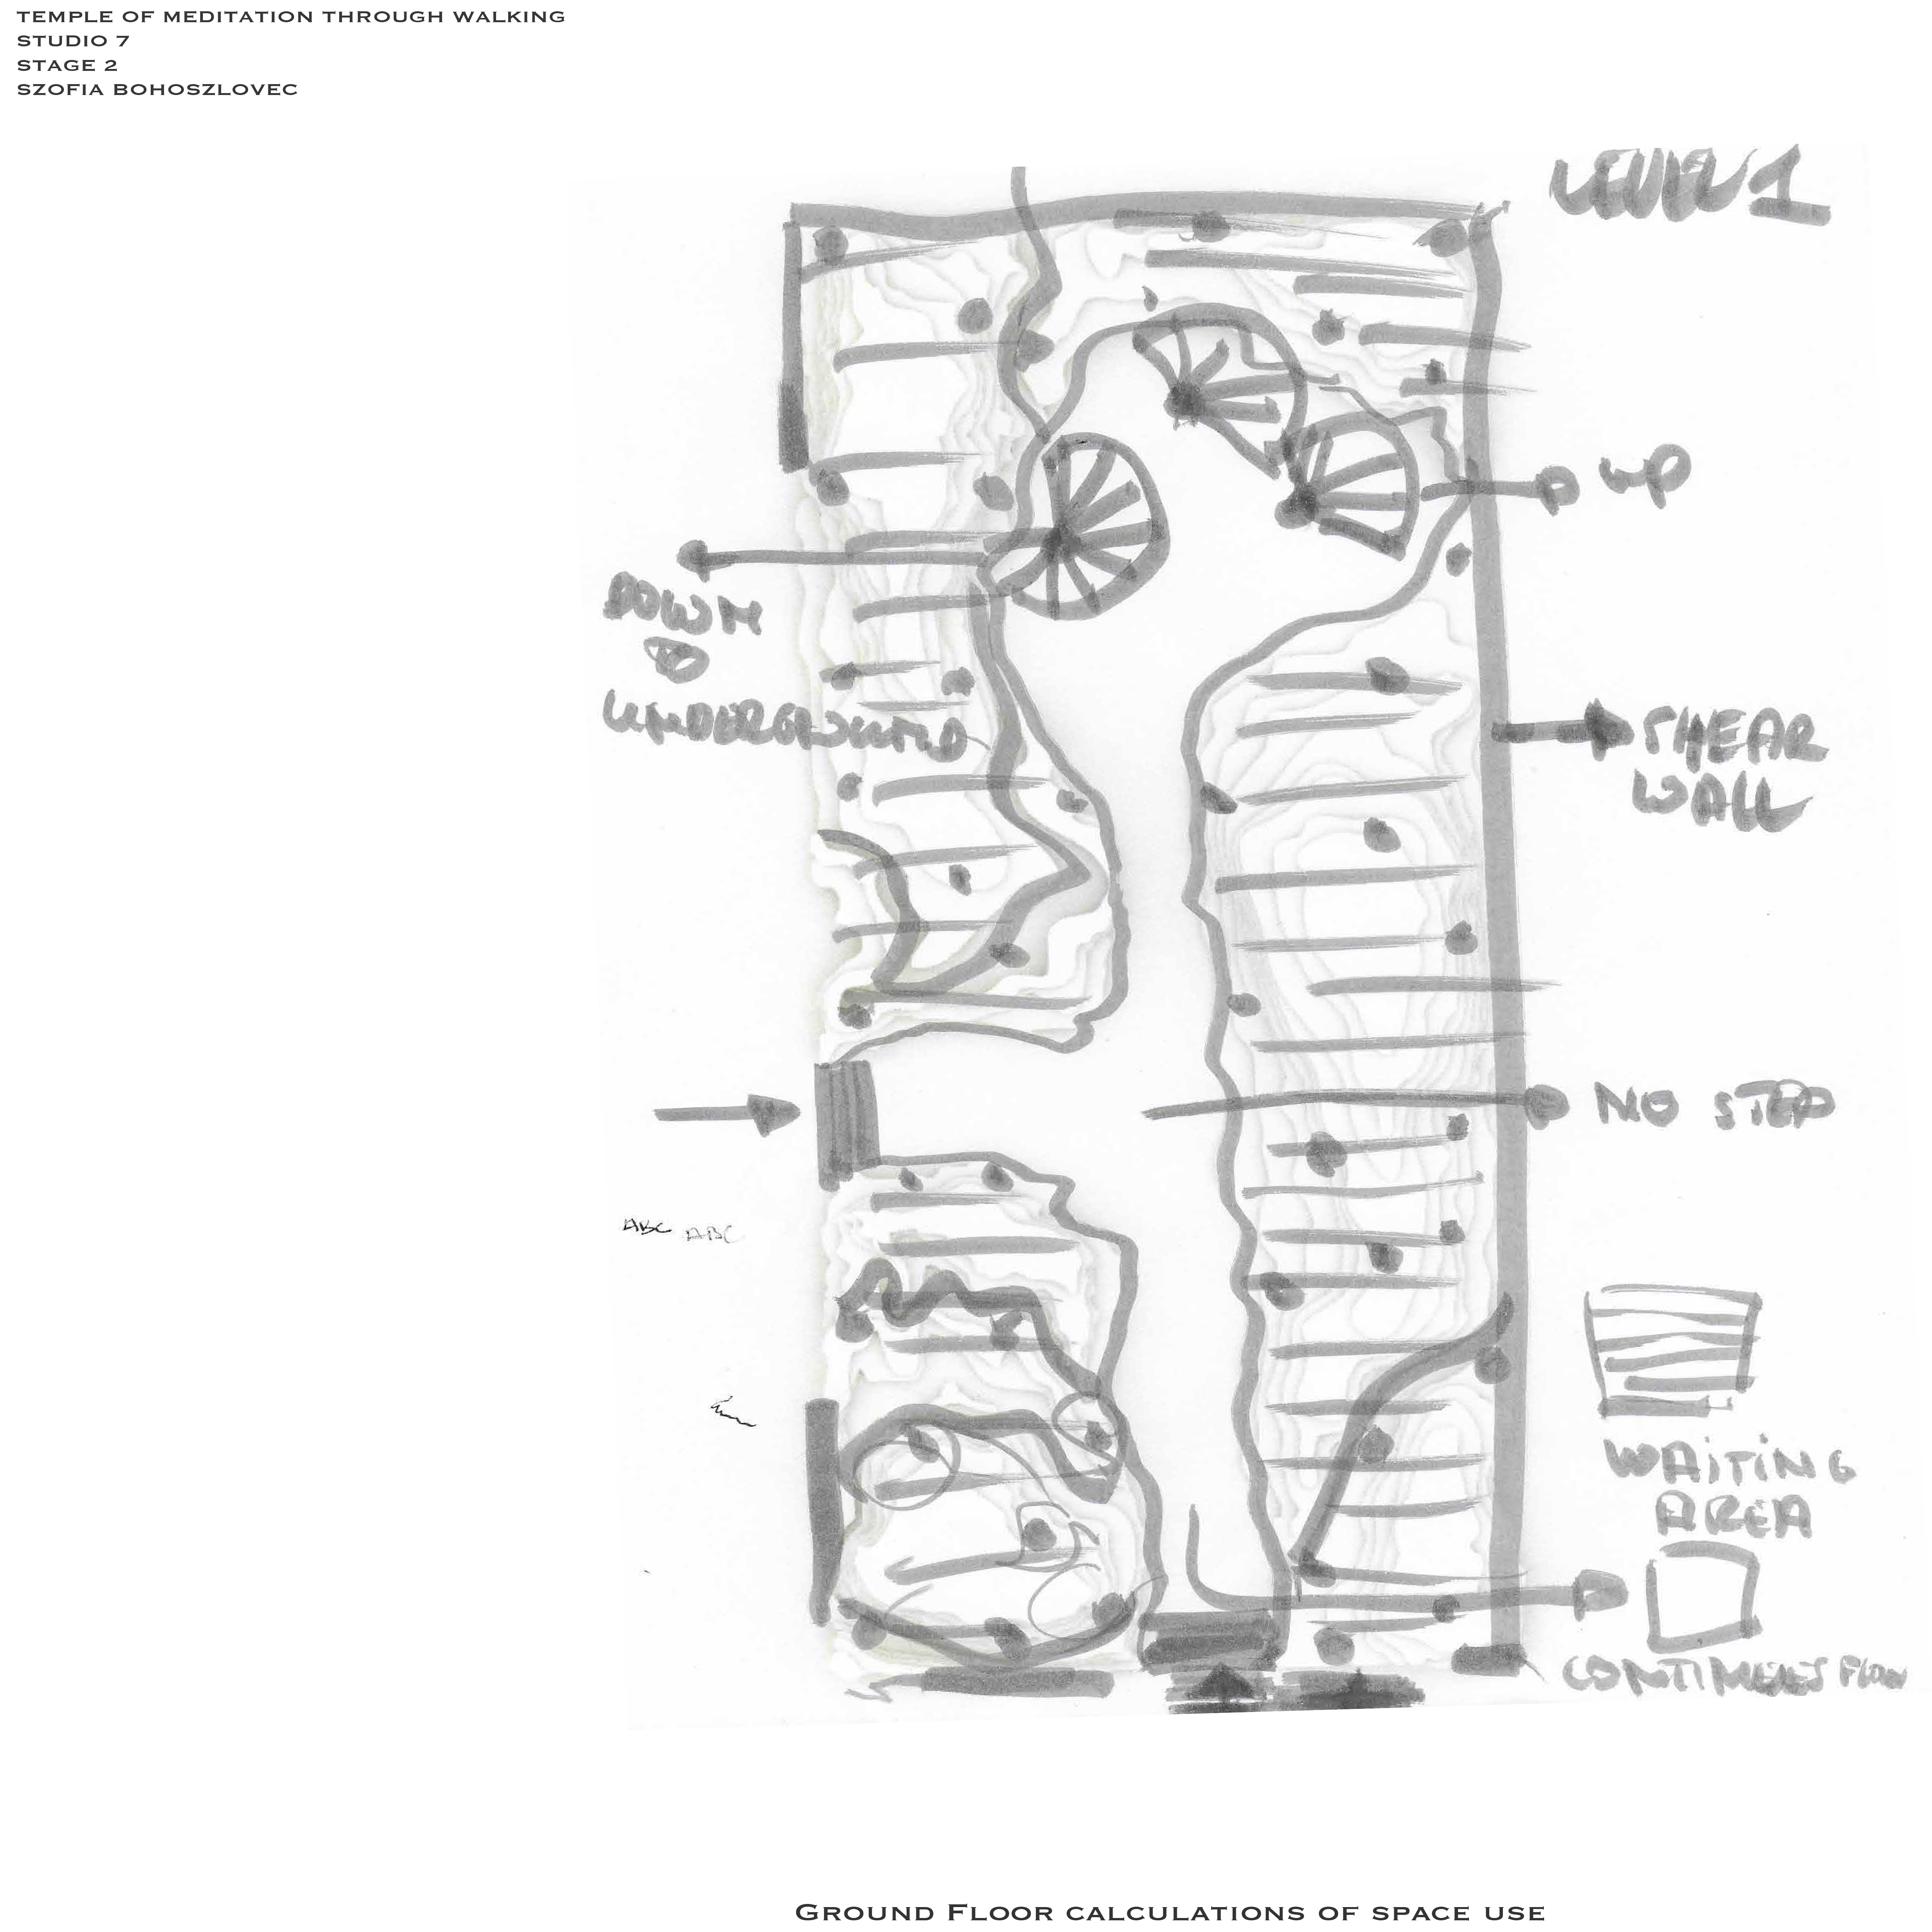 TEMPLE OF MEDITATION THROUGH WALKING
STUDIO 7
STAGE 2
SZOFIA BOHOSZLOVEC
LEVEL 1
UP
DOWN
TO
UNDERGROUND
SHEAR
WALL
NO STEP
ABC ABC
WAITING
AREA
FLOW
GROUND FLOOR CALCULATIONS OF SPACE USE